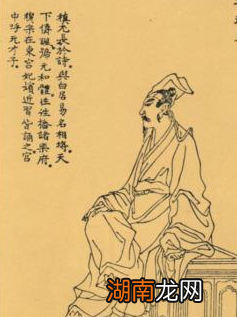 稹尤長於詩。與白居易名相埒。天
下傳諷。號元和體。往往播諸樂府。
穆宗在東宮。妃嬪近習皆誦之。宮
中呼元才子。
湖南龙网